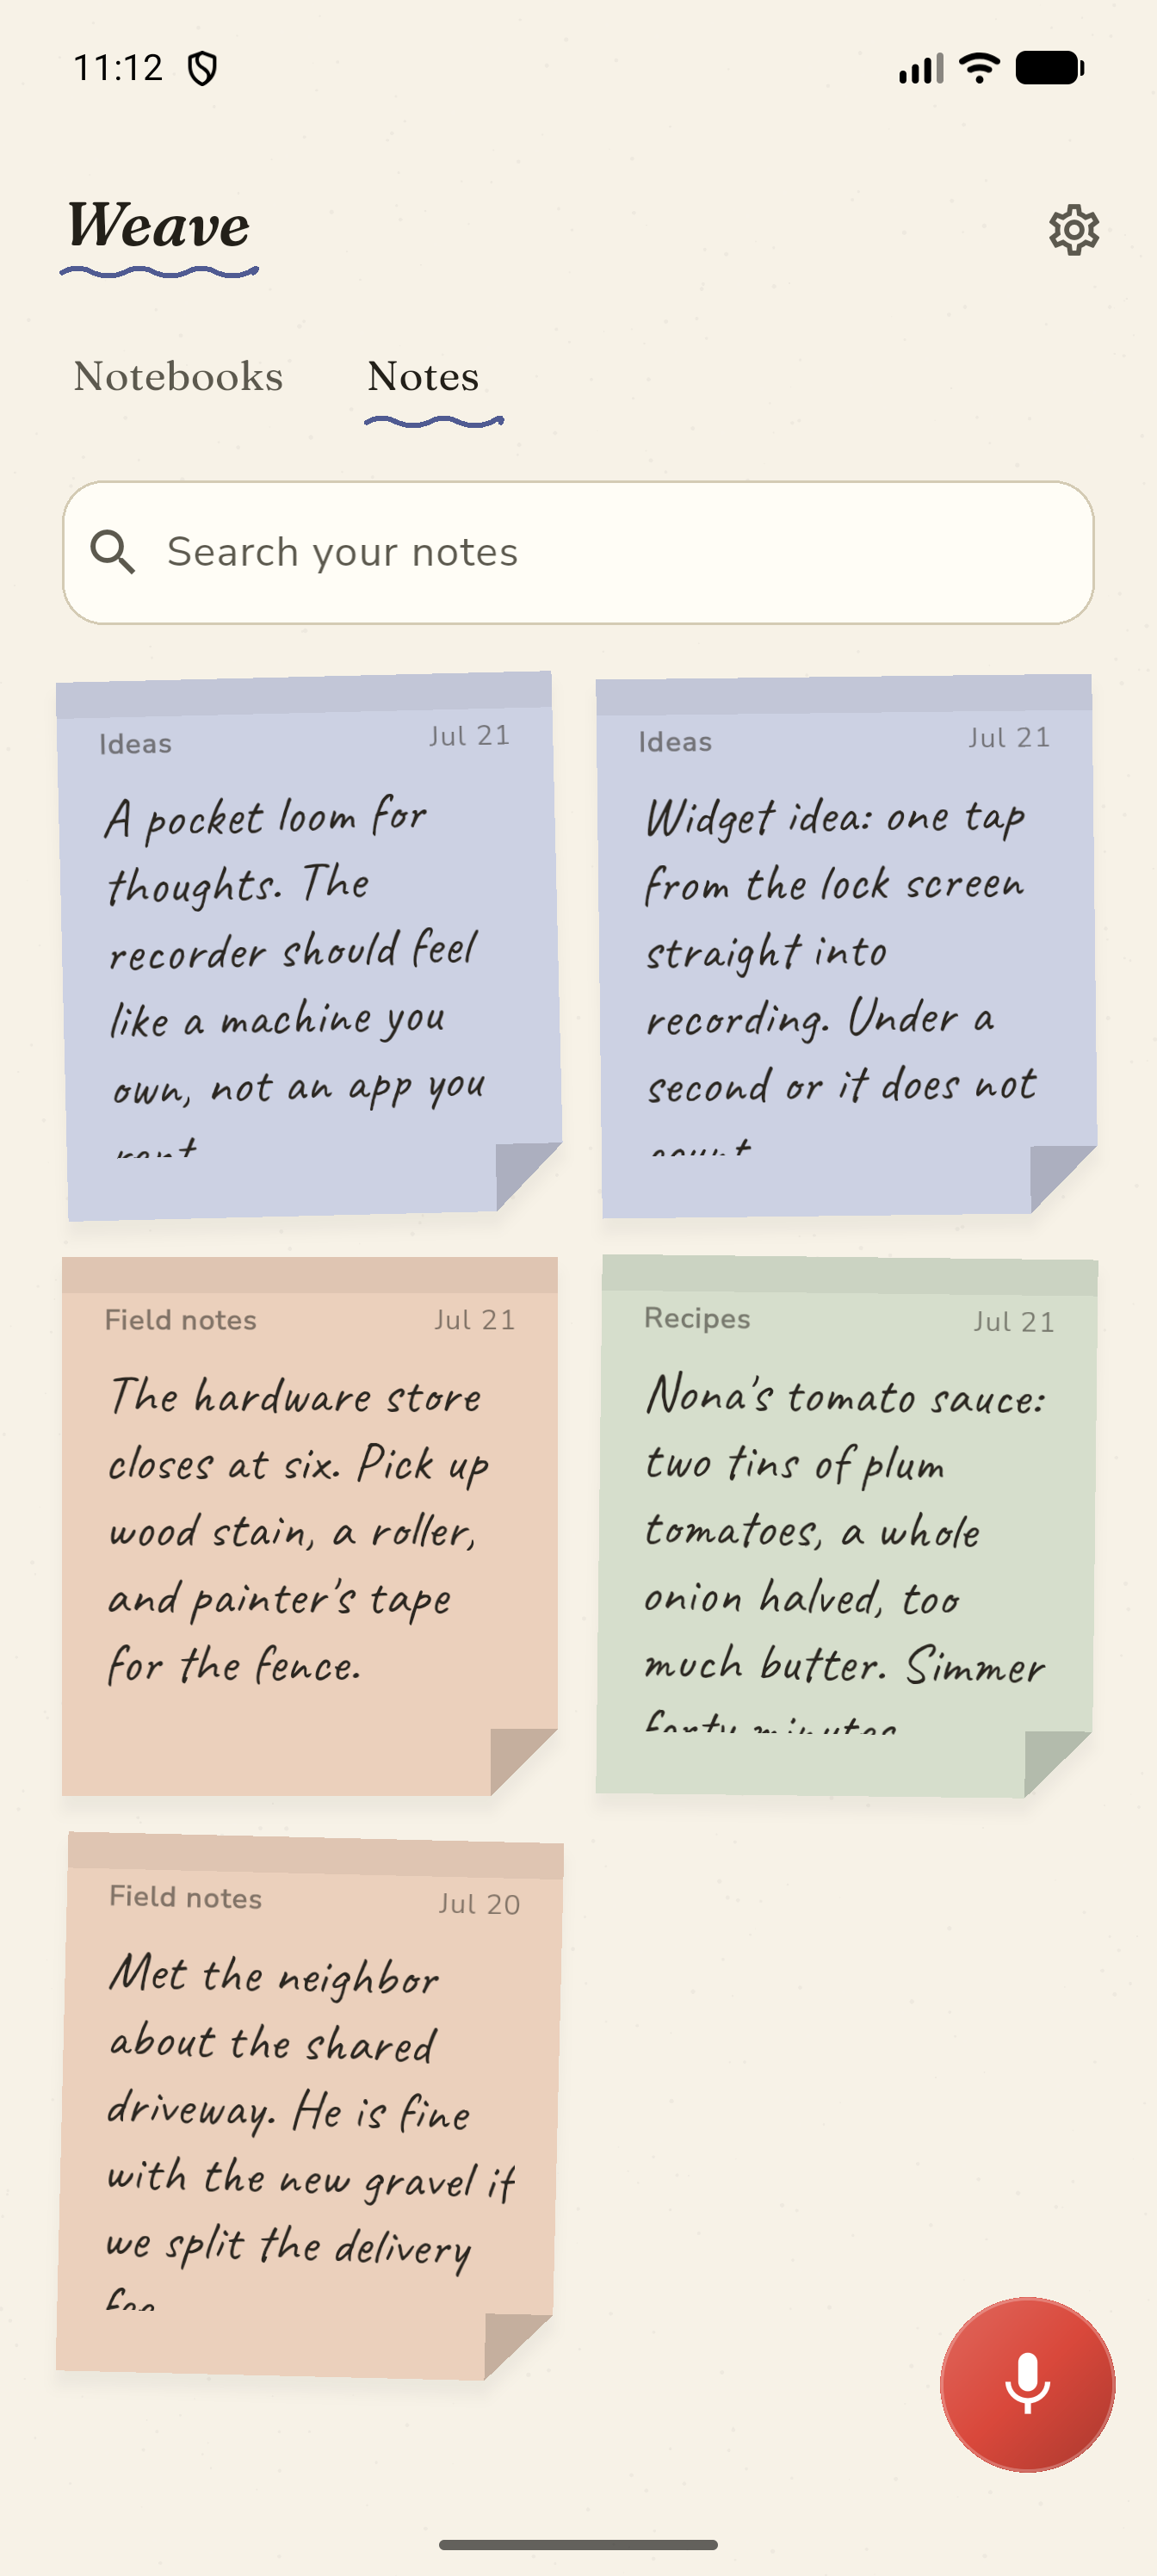 11:12
Weave
Notebooks
Notes
Search your notes
Ideas
Jul 21
A pocket loom for
thoughts. The
recorder should feel
like a machine you
own, not an app you
rent
Ideas
Jul 21
Widget idea: one tap
from the lock screen
straight into
recording. Under a
second or it does not
count
Field notes
Jul 21
The hardware store
closes at six. Pick up
wood stain, a roller,
and painter's tape
for the fence.
Recipes
Jul 21
Nona's tomato sauce:
two tins of plum
tomatoes, a whole
onion halved, too
much butter. Simmer
forty minutes
Field notes
Jul 20
Met the neighbor
about the shared
driveway. He is fine
with the new gravel if
we split the delivery
fee